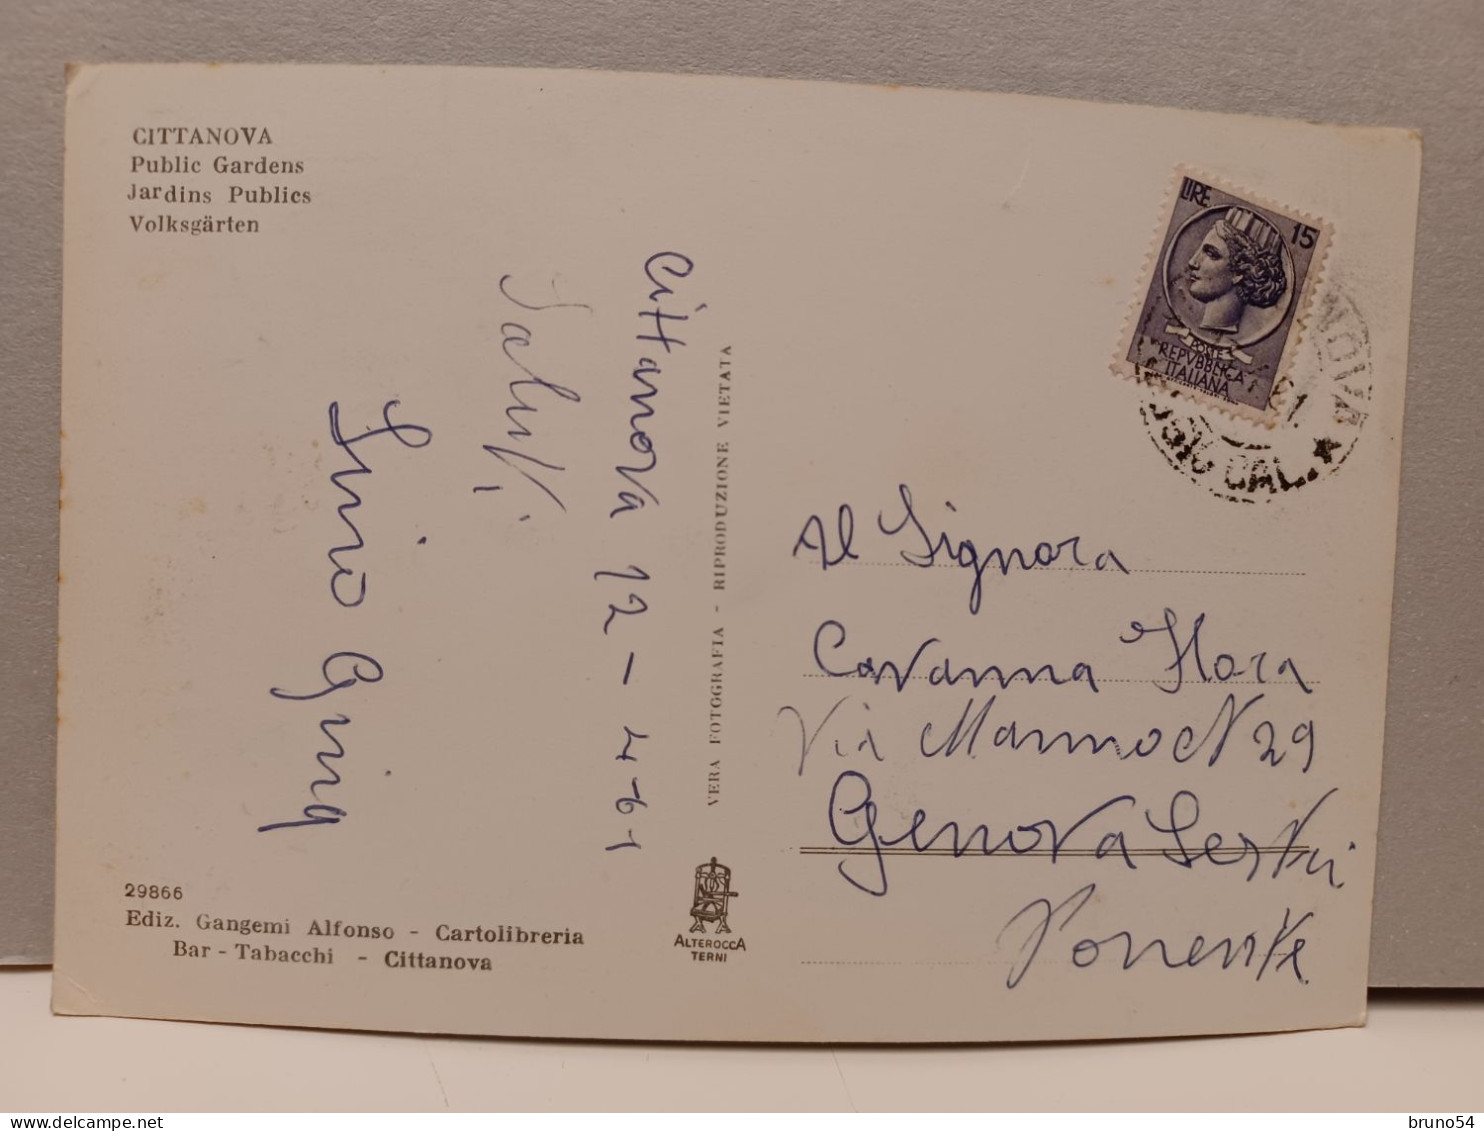 CITTANOVA
Public Gardens
Jardins Publics
Volksgärten
Cittanova 12-4-61
Saluti
VERA FOTOGRAFIA - RIPRODUZIONE VIETATA
29866
Ediz. Gangemi Alfonso - Cartolibreria
Bar - Tabacchi - Cittanova
ALTEROCCA
TERNI
LIRE 15
POSTE
REPVBBLICA
ITALIANA
NOVA
CAL.
Signora
Cavanna Flora
Via N 29
Genova Sestri
Ponente
bruno54